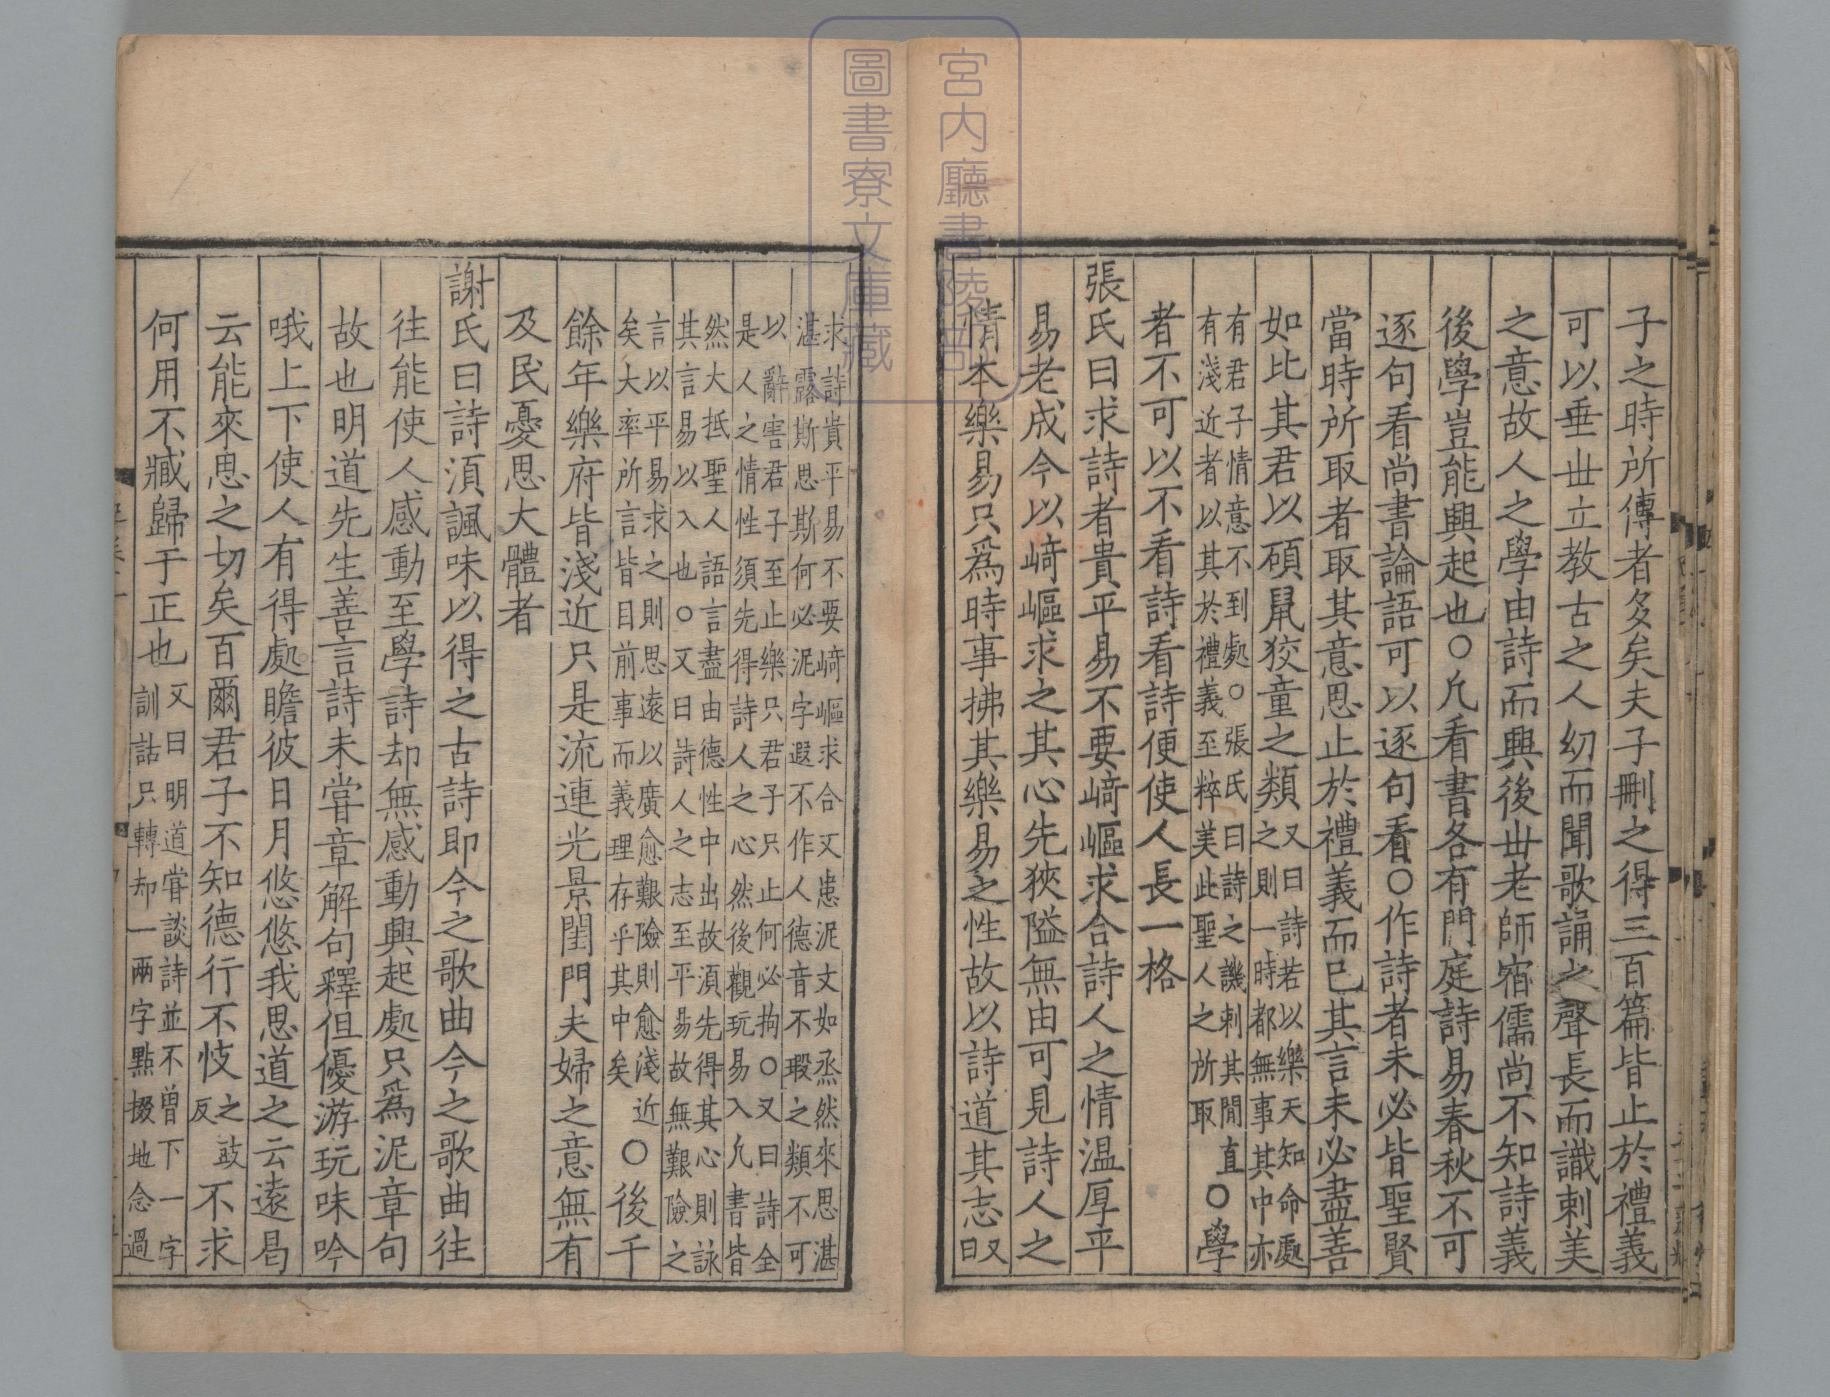 子之時所傳者多矣夫子刪之得三百篇皆止於禮義
可以垂丗立教古之人幼而聞歌誦之聲長而識刺美
之意故人之學由詩而興後丗老師宿儒尚不知詩義
後學豈能興起也○凡看書各有門庭詩易春秋不可
逐句看尚書論語可以逐句看○作詩者未必皆聖賢
當時所取者取其意思止於禮義而已其言未必盡善
如比其君以碩鼠狡童之類
又曰詩若以樂天知命處
之則一時都無事其中亦
有君子情意不到處○張氏曰詩之譏刺其間直
有淺近者以其於禮義至粹美此聖人之所取
○學
者不可以不看詩看詩便使人長一格
張氏曰求詩者貴平易不要﨑嶇求合詩人之情温厚平
易老成今以﨑嶇求之其心先狹隘無由可見詩人之
情本樂易只爲時事拂其樂易之性故以詩道其志
又曰
求詩貴平易不要﨑嶇求合又患泥文如丞然來思湛
湛露斯思斯何必泥字遐不作人德音不瑕之類不可
以辭害君子至止樂只君子只止何必拘○又曰詩全
是人之情性須先得詩人之心然後觀玩易入凡書皆
然大抵聖人語言盡由德性中出故湏先得其心則詠
其言易以入也○又曰詩人之志至平易故無艱險之
言以平易求之則思遠以廣愈艱險則愈淺近
矣大率所言皆目前事而義理存乎其中矣
○後千
餘年樂府皆淺近只是流連光景閨門夫婦之意無有
及民憂思大體者
謝氏曰詩湏諷味以得之古詩即今之歌曲今之歌曲往
往能使人感動至學詩却無感動興起處只爲泥章句
故也明道先生善言詩未甞章解句釋但優游玩味吟
哦上下使人有得處瞻彼日月悠悠我思道之云遠曷
云能來思之切矣百爾君子不知德行不忮
之豉
反
不求
何用不臧歸于正也
又曰明道甞談詩並不曽下一字
訓詁只轉却一兩字點掇地念過
宮内廳書陵部
圖書寮文庫藏